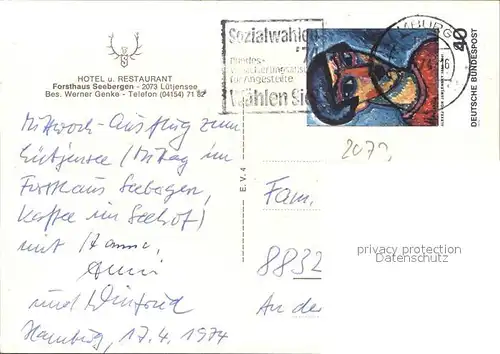 HOTEL u. RESTAURANT
Forsthaus Seebergen - 2073 Lütjensee
Bes. Werner Genke - Telefon (04154) 71 82
Sozialwahlen
Bundes-
versicherungsanstalt
für Angestellte
Wählen Sie
40
DEUTSCHE BUNDESPOST
Mittwoch-Ausflug zum
Lütjensee (Mittag im
Forsthaus Seebergen,
Kaffee im Seehof)
mit Hanna,
Anni
und Winfried
Hamburg, 17.4.1974
E.V.4
2073
Fam.
8832
An der
privacy protection
Datenschutz